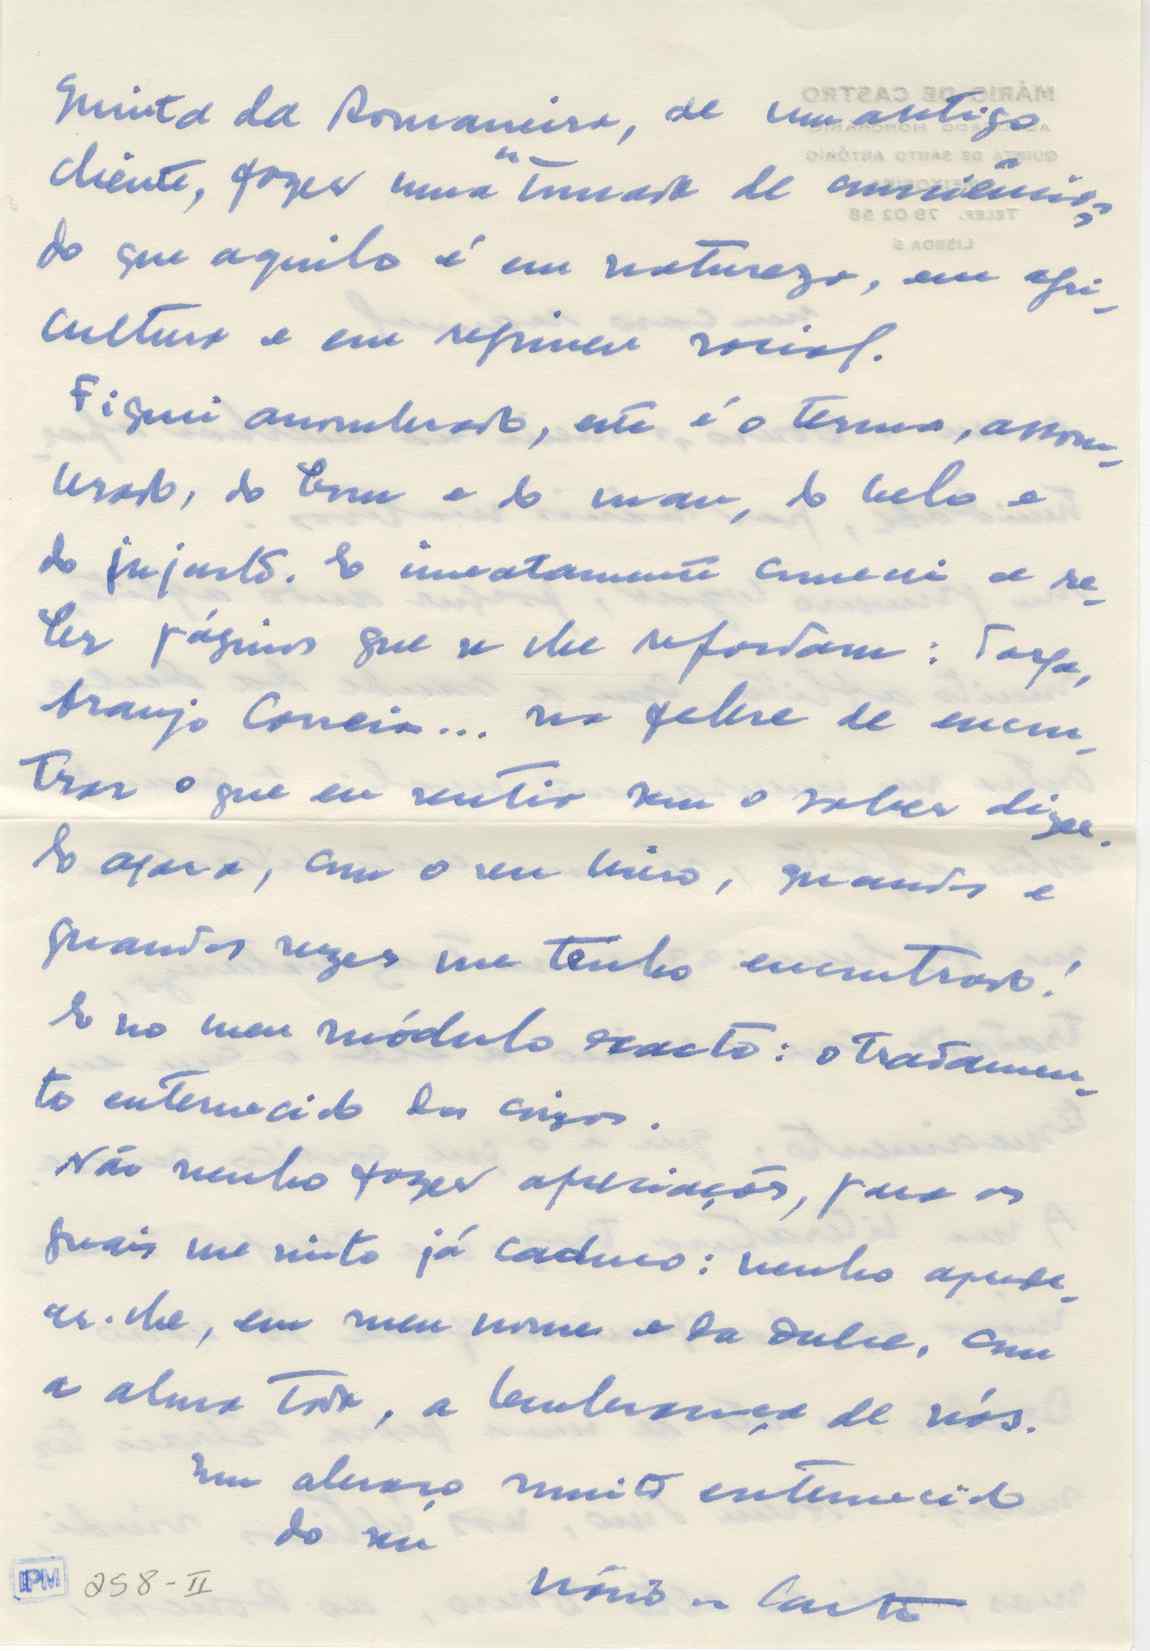 Quinta da Romaneira, de um antigo
cliente, fazer uma "tomada de consciência"
do que aquilo é em natureza, em agri-
cultura e em regimen social.
Fiquei assombrado, este é o termo, assom-
brado, do bom e do mau, do belo e
do injusto. E imediatamente comecei a re-
ler páginas que se lhe reportam: Torga,
Araujo Correia... na febre de encon-
trar o que eu sentia sem o saber dizer.
E agora, com o seu livro, quando e
quandas vezes me tenho encontrado!
E no meu módulo exacto: o tratamen-
to enternecido das coisas.
Não venho fazer apreciações, para as
quais me sinto já caduco: venho agrade-
cer-lhe, em meu nome e da Dulce, com
a alma toda, a lembrança de nós.
Um abraço muito enternecido
do seu
Mário de Castro
IPM 258-II
MÁRIO DE CASTRO
ADVOGADO HONORÁRIO
QUINTA DE SANTO ANTÓNIO
TELEF. 79 02 58
LISBOA 5